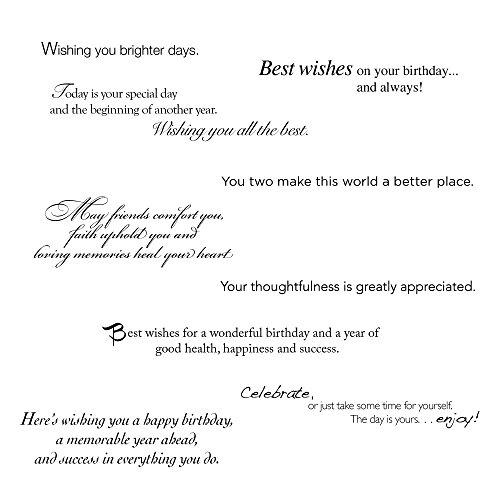 Wishing you brighter days.
Best wishes on your birthday...
and always!
Today is your special day
and the beginning of another year.
Wishing you all the best.
You two make this world a better place.
May friends comfort you,
faith uphold you and
loving memories heal your heart
Your thoughtfulness is greatly appreciated.
Best wishes for a wonderful birthday and a year of
good health, happiness and success.
Celebrate,
or just take some time for yourself.
The day is yours. . . enjoy!
Here's wishing you a happy birthday,
a memorable year ahead,
and success in everything you do.